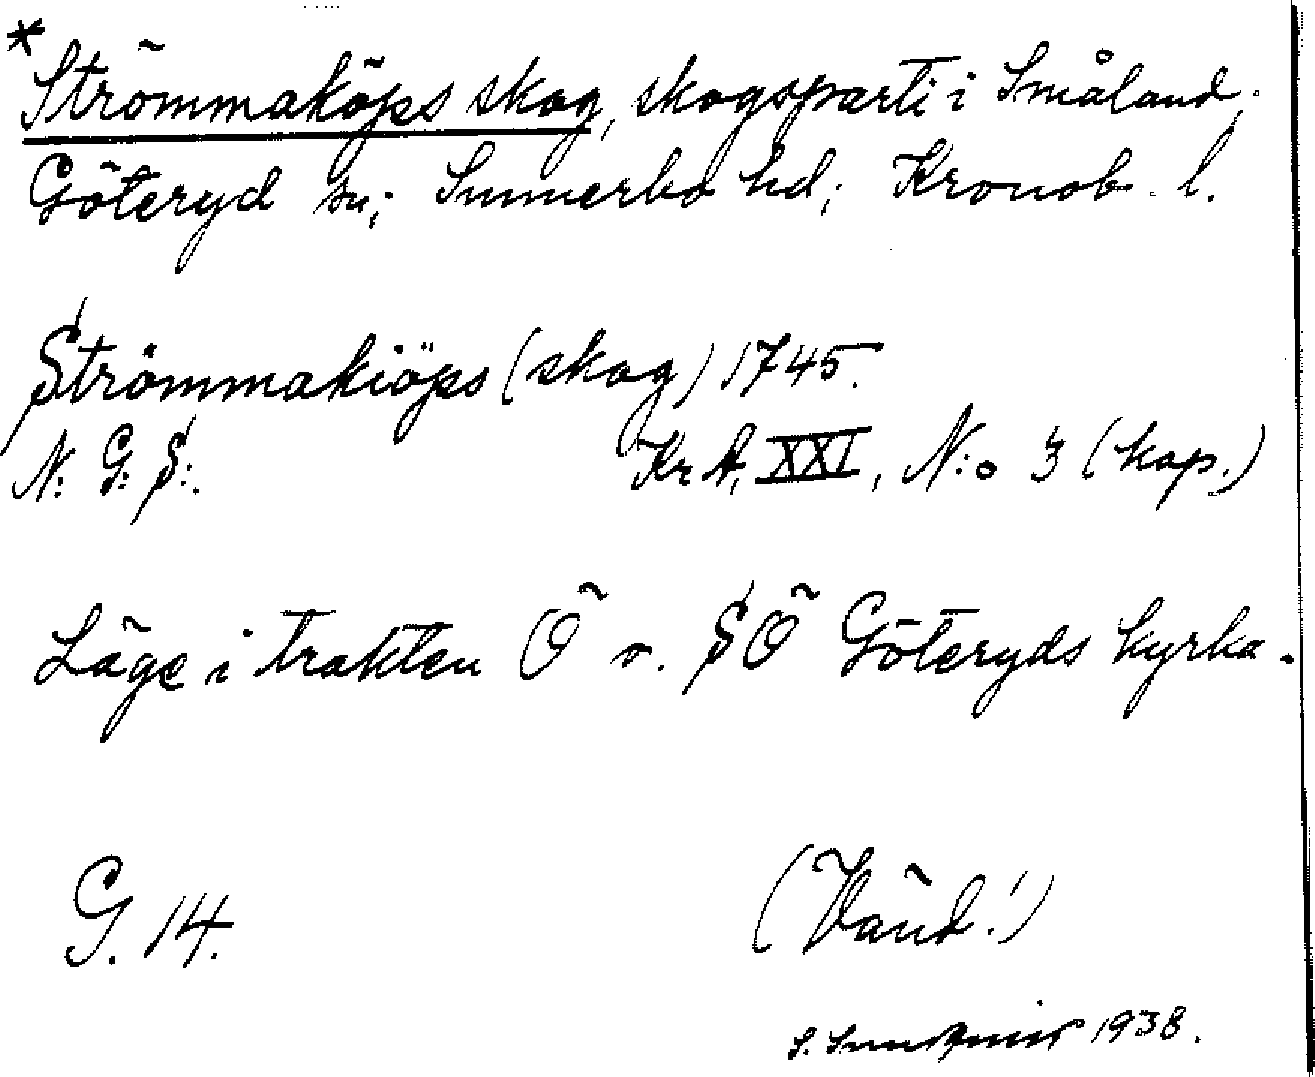 *
Strömmaköps skog, skogsparti i Småland,
Göteryd sn; Sunnerbo hd; Kronob. l.
Strömmakiöps (skog) 1745.
N: G: S:. KrA, XXI, N:o 3 (kop.)
Läge i trakten Ö v. SÖ Göteryds kyrka.
G. 14. (Vänd!)
S. Sundqvist 1938.